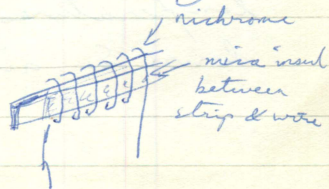 nichrome
mica insul
between
strip & wire